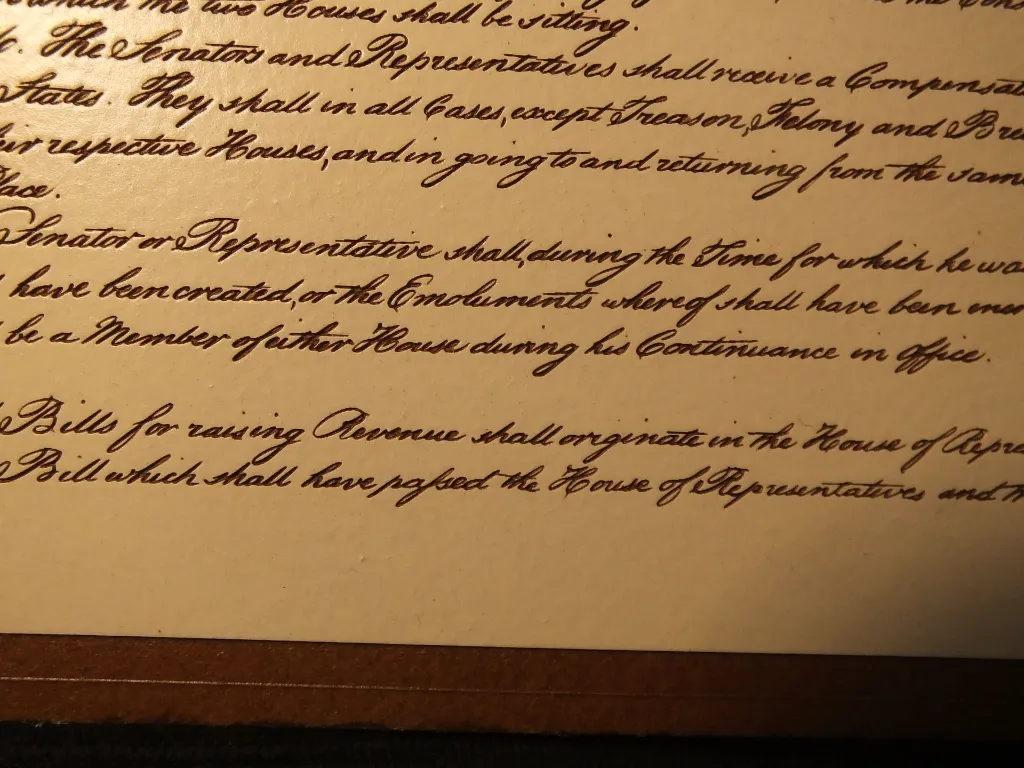 which the two Houses shall be sitting.
The Senators and Representatives shall receive a
States. They shall in all Cases, except Treason, Felony and
respective Houses, and in going to and returning from the same
Place.
Senator or Representative shall, during the Time for which he was
have been created, or the Emoluments whereof shall have been
be a Member of either House during his Continuance in Office.
Bills for raising Revenue shall originate in the House of
Bill which shall have paſsed the House of Representatives and